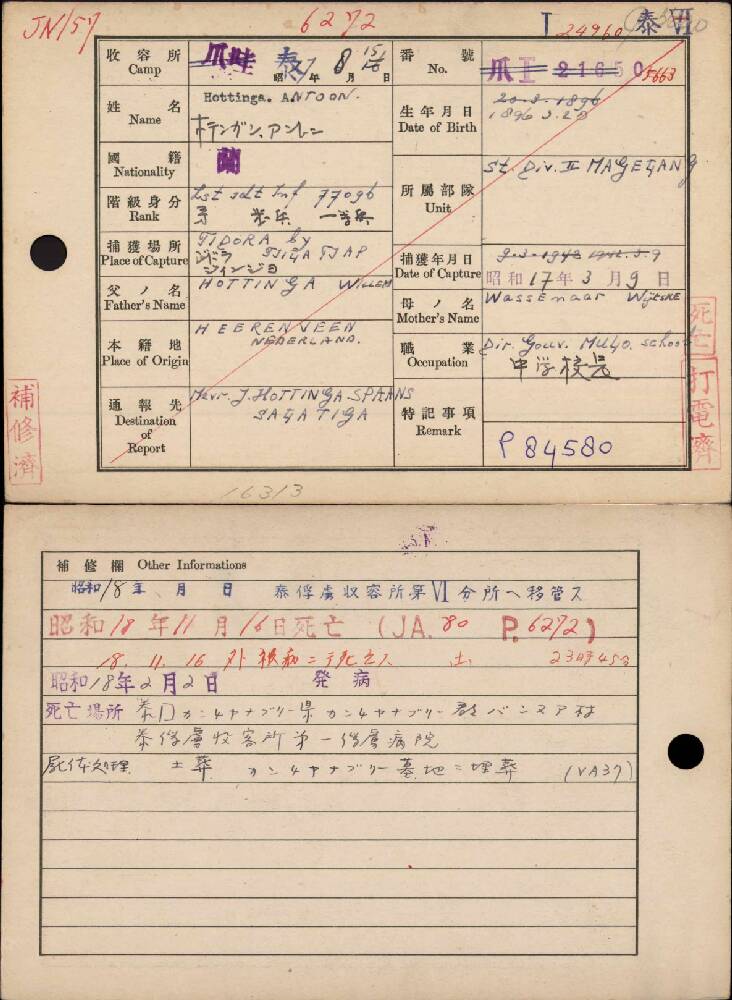 JN 157
6272
I 24960 泰 VI
收容所 Camp
爪哇 泰 昭 17 年 8 月 15 日
番號 No.
爪 II 21650 5663
姓名 Name
Hottinga. ANTOON.
ホテンガン、アントーン
生年月日 Date of Birth
20-3-1896
1896.3.20
國籍 Nationality
蘭
所屬部隊 Unit
St. Div. II MAGELANG
階級身分 Rank
1st sdt Inf 77096
歩兵 一等兵
捕獲場所 Place of Capture
TJIDORA by
TJIGA TJAP
捕獲年月日 Date of Capture
9-3-1942 1942.3.9
昭和17年3月9日
父ノ名 Father's Name
HOTTINGA WILLEM
母ノ名 Mother's Name
Wassenaar Wijtske
本籍地 Place of Origin
HEERENVEEN
NEDERLAND.
職業 Occupation
Dir. Gouv. MULO. school
中学校長
通報先 Destination of Report
Mevr. J. HOTTINGA-SPAANS
SALATIGA
特記事項 Remark
P 84580
補修濟
死亡
打電濟
16313
補修欄 Other Informations
昭和18年 月 日 泰俘虜収容所第VI分所ヘ移管ス
昭和18年11月16日死亡 (JA. 80 P. 6272)
18. 11. 16 23時45分
昭和18年2月2日 発病
死亡場所 泰国カンチヤナブリー県カンチヤナブリー郡バンヌア村
泰俘虜收容所第一俘虜病院
屍体処理 土葬 カンチヤナブリー墓地ニ埋葬 (VA37)